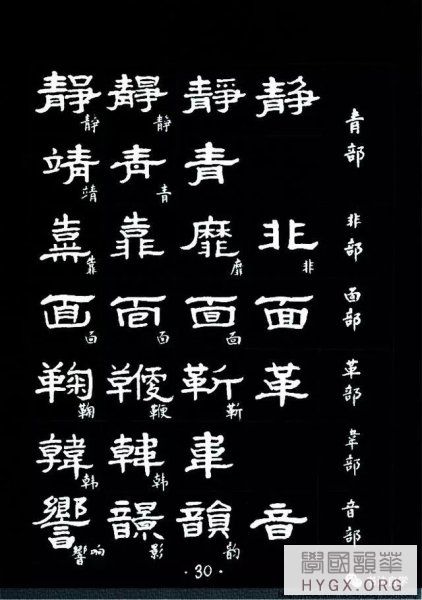 青部
静 靜 靜静 靜静
青 青青 靖靖
非部
非非 靡靡 靠 靠靠
面部
面 面面 面面 面面
革部
革 靳靳 鞭鞭 鞠鞠
韋部
韋 韓韩 韓韩
音部
音 韻韵 響响
·30·
學國韻華
HYGX.ORG